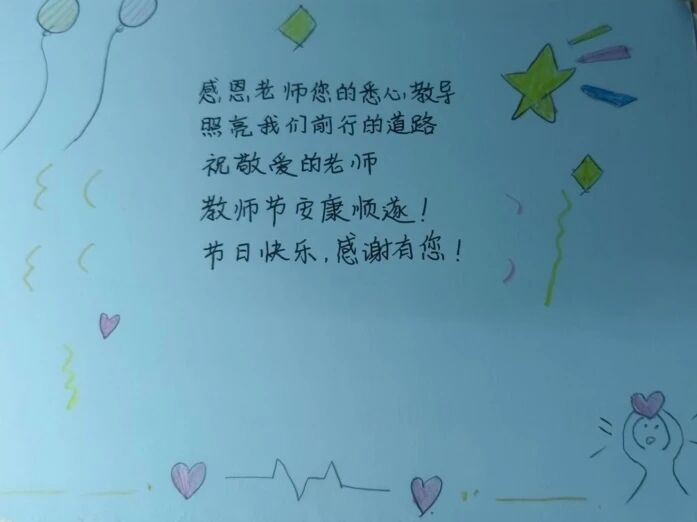 感恩老师您的悉心教导
照亮我们前行的道路
祝敬爱的老师
教师节安康顺遂！
节日快乐，感谢有您！